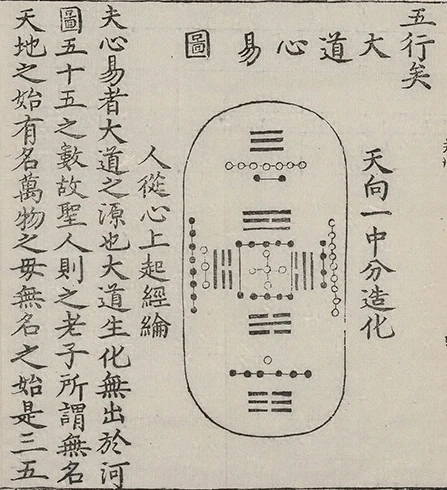 五行矣
大道心易圖
天向一中分造化
人從心上起經綸
夫心易者大道之源也大道生化無出於河
圖五十五之數故聖人則之老子所謂無名
天地之始有名萬物之毋無名之始是三五